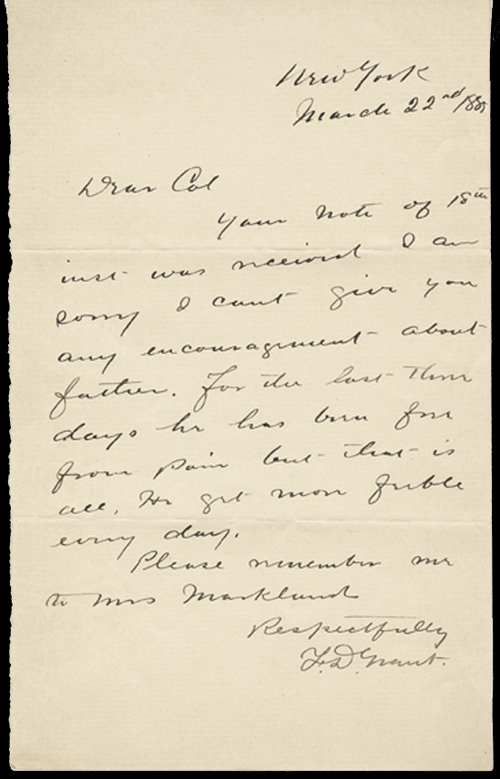 New York
March 22nd/885
Dear Col
Your note of 18th
inst was received I am
sorry I cant give you
any encouragement about
father. For the last three
days he has been free
from pain but that is
all. He get more feeble
every day.
Please remember me
to Mrs Markland
Respectfully
F.D. Grant.